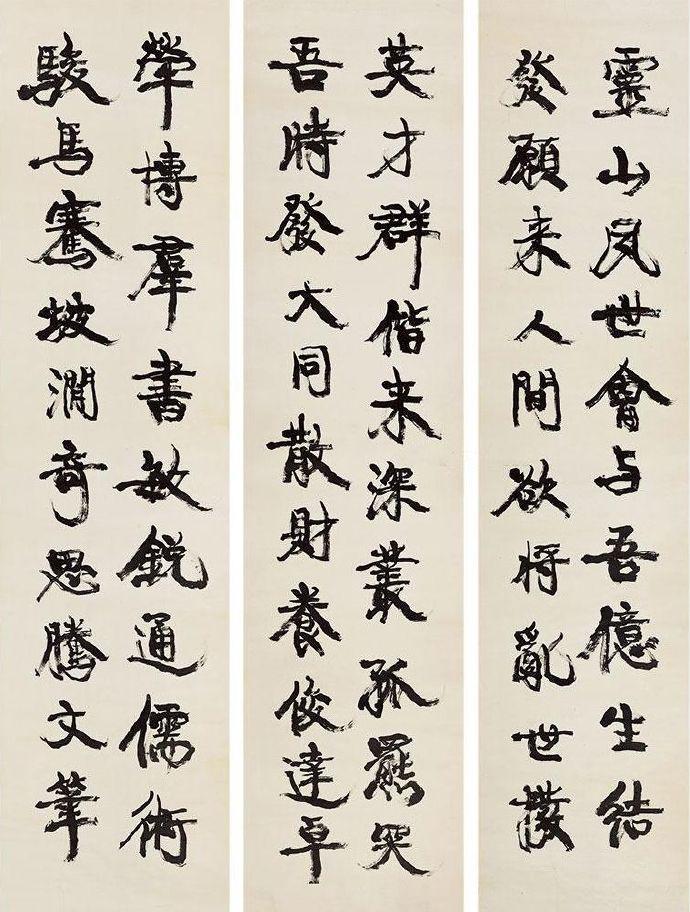 靈山夙世會与吾億生結
發願来人間欲将亂世撥
英才群偕来深叢孤羆哭
吾時發大同散財養俊達卓
犖博羣書敏銳通儒術
駿馬騫坡澗奇思騰文筆